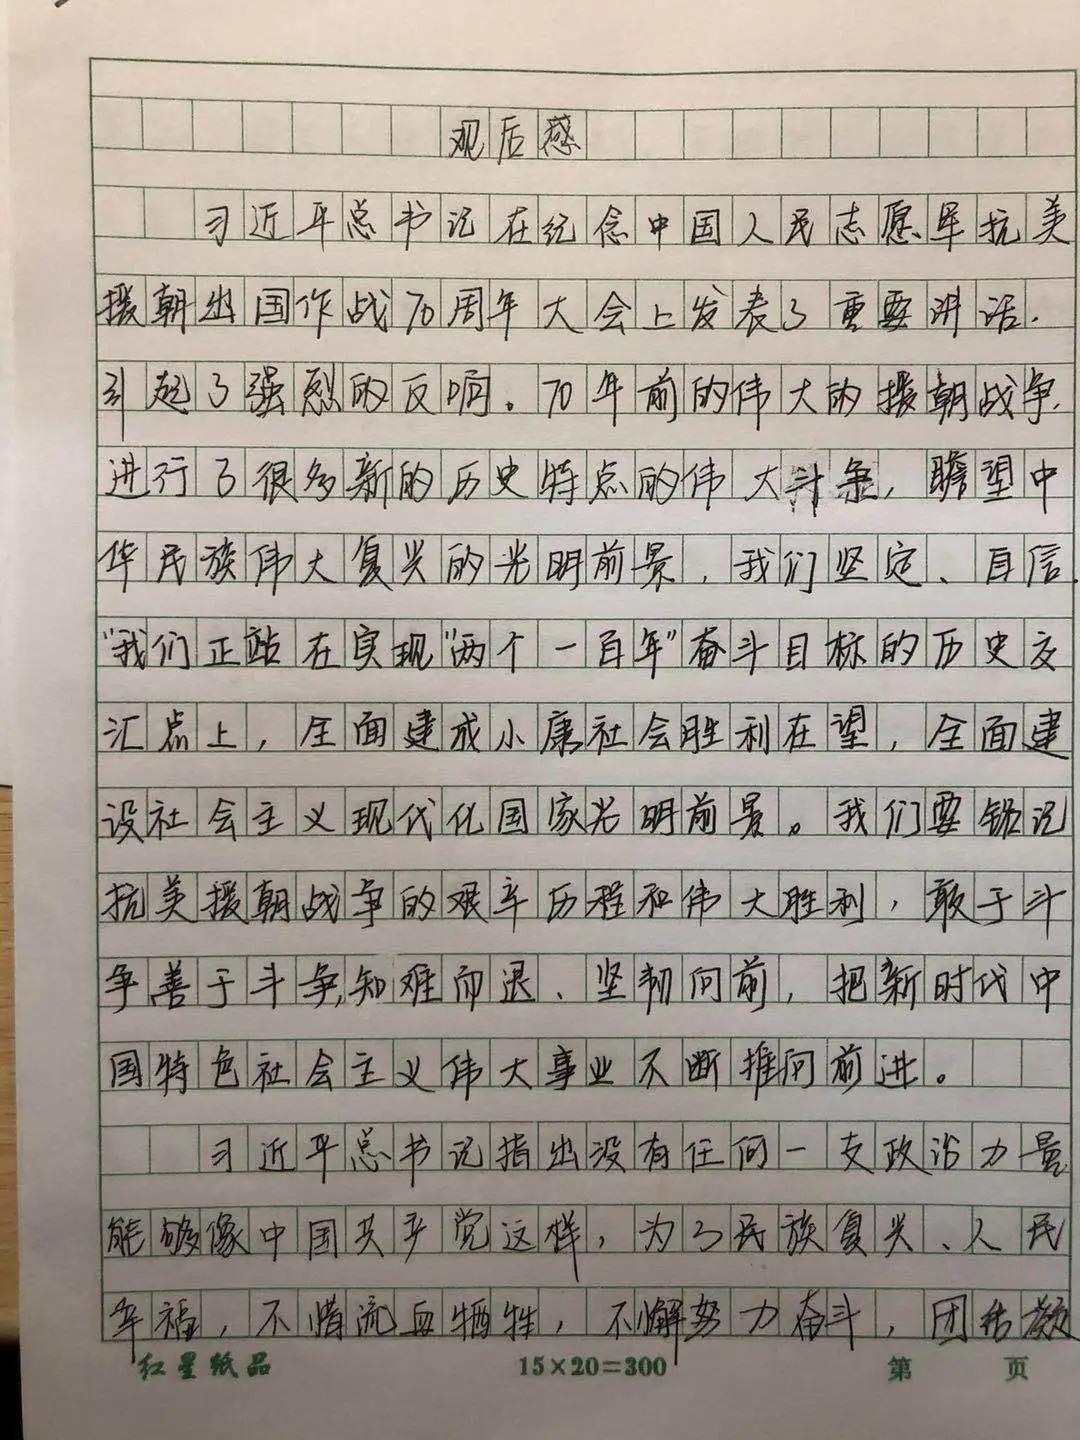 观后感
习近平总书记在纪念中国人民志愿军抗美
援朝出国作战70周年大会上发表了重要讲话.
引起了强烈的反响。70年前的伟大的援朝战争.
进行了很多新的历史特点的伟大斗争，瞻望中
华民族伟大复兴的光明前景，我们坚定、自信.
"我们正站在实现"两个一百年"奋斗目标的历史交
汇点上，全面建成小康社会胜利在望，全面建
设社会主义现代化国家光明前景。我们要铭记
抗美援朝战争的艰辛历程和伟大胜利，敢于斗
争善于斗争,知难而退、坚韧向前，把新时代中
国特色社会主义伟大事业不断推向前进。
习近平总书记指出没有任何一支政治力量
能够像中国共产党这样，为了民族复兴、人民
幸福，不惜流血牺牲，不懈努力奋斗，团结凝
红星纸品 15×20=300 第 页